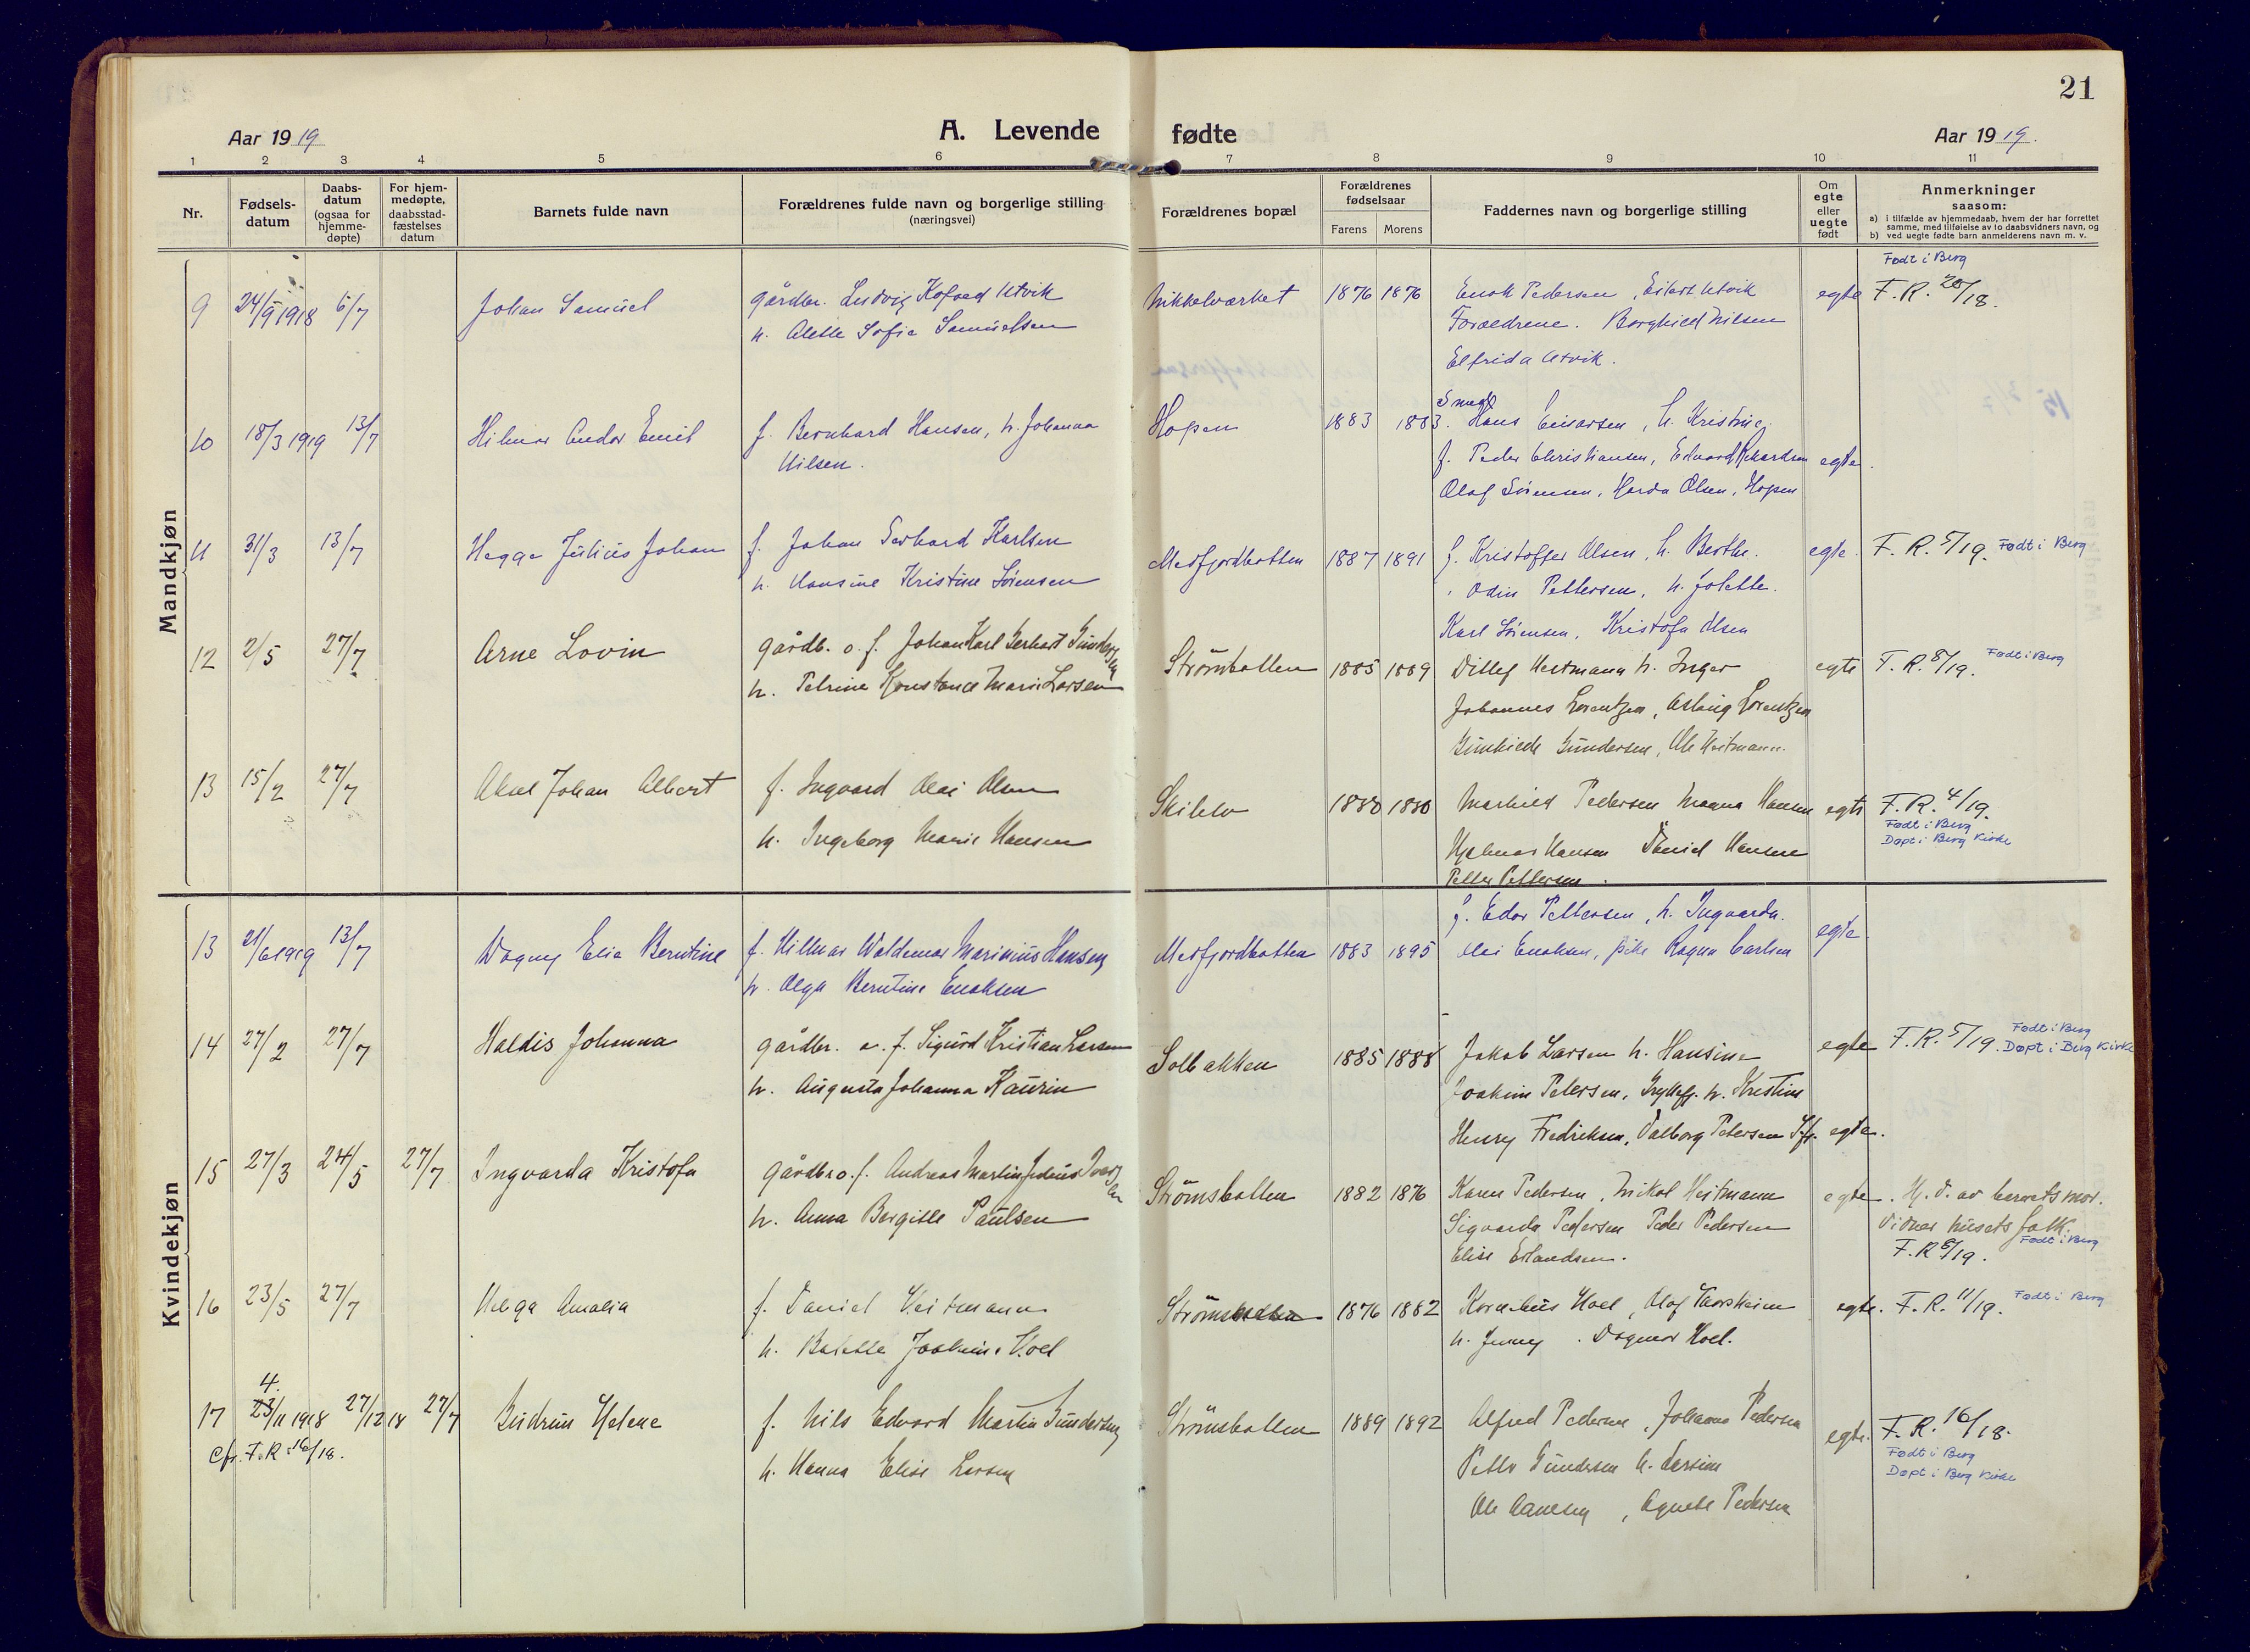 21
Aar 1919
A. Levende fødte
Aar 1919.
1 2 3 4 5 6 7 8 9 10 11
Nr.
Fødsels-
datum
Daabs-
datum
(ogsaa for
hjemme-
døpte)
For hjem-
medøpte,
daabsstad-
fæstelses
datum
Barnets fulde navn
Forældrenes fulde navn og borgerlige stilling
(næringsvei)
Forældrenes bopæl
Forældrenes
fødselsaar
Farens Morens
Faddernes navn og borgerlige stilling
Om
egte
eller
uegte
født
Anmerkninger
saasom:
a) i tilfælde av hjemmedaab, hvem der har forrettet
samme, med tilføielse av to daabsvidners navn, og
b) ved uegte fødte barn anmelderens navn m. v.
Mandkjøn
Født i Berg
9 24/9 1918 6/7 Johan Samuel gårdbr. Ludvig Kofoed Utvik Nikkelværket 1876 1876 Enok Pedersen, Eilert Utvik egte F. R. 20/18.
h. Alette Sofie Samuelsen Forældrene. Borghild Nilsen
Elfrida Utvik.
10 18/3 1919 13/7 Hilmar Andor Emil f. Bernhard Hansen, h. Johanna Hopen 1883 1883. Hans Einarsen, h. Kristine
Nilsen. f. Peder Christiansen, Edvard Rikardsen egte.
Olaf Sørensen, Gerda Olsen, Hopen
11 31/3 13/7 Hegge Julius Johan f. Johan Gerhard Karlsen Mefjordbotten 1887 1891 f. Kristoffer Olsen, h. Berthe. egte. F. R. 5/19. Født i Berg
h. Hansine Kristine Sørensen Odin Pettersen, h. Jolette.
Karl Sørensen, Kristofa Olsen
12 2/5 27/7 Arne Lovin gårdb. o. f. Johan Karl Gerhart Gundersen Strømsbotten 1885 1889 Ditlef Heitmann h. Inger egte F. R. 8/19. Født i Berg
h. Petrine Konstance Marie Larsen Johannes Lorentzen, Aslaug Lorentzen
Gunhilde Gundersen, Ole Heitmann.
13 15/2 27/7 Aksel Johan Albert f. Ingvard Olai Olsen 1880 1880 Marhild Pedersen Magna Hansen egte F. R. 4/19.
Født i Berg
Døpt i Berg Kirke
h. Ingeborg Marie Hansen Hjalmar Hansen Daniel Hansen
Petter Pettersen.
Kvindekjøn
f. Edor Pettersen, h. Ingvarda.
13 21/6 1919 13/7 Dagny Elia Berntine f. Hilmar Waldemar Marinius Hansen Mefjordbotten 1883 1895 Olai Enoksen, pike Ragna Carlsen egte
h. Olga Berntine Enoksen
14 27/2 27/7 Haldis Johanna gårdbr. o. f. Sigurd Kristian Larsen Solbakken 1885 1888 Jakob Larsen h. Hansine egte F. R. 5/19. Født i Berg
Døpt i Berg Kirke
h. Augusta Johanna Kaurin Joakim Petersen, Gryllefj. h. Kristine
Henry Fredriksen, Valborg Petersen egte.
15 27/3 24/5 27/7 Ingvarda Kristofa gårdbr o. f. Andreas Martin Iversen Strømsbotten 1882 1876 Karen Pedersen, Nikol Heitmann egte. Hj. d. av barnets mor.
h. Anna Bergitte Paulsen Sigvarda Pedersen Peder Pedersen Vidner husets folk.
Elise Erlandsen. F. R 6/19. Født i Berg
16 23/5 27/7 Helga Amalia f. Daniel Heitmann Strømsbotten 1876 1882 Kornelius Hoel, Olaf Thorsheim egte. F. R. 11/19. Født i Berg
h. Joakime Hoel h. Jenny. Dagmar Hoel.
4.
17 23/11 1918 27/12 18 27/7 Gudrun Helene f. Nils Edvard Martin Gundersen Strømsbotten 1889 1892 Alfred Pedersen, Johanna Pedersen egte. F. R. 16/18.
Cfr. F. R. 16/18. Født i Berg
Døpt i Berg Kirke
h. Hanna Elise Larsen Petter Gundersen h.
Ole, Agnete Pedersen